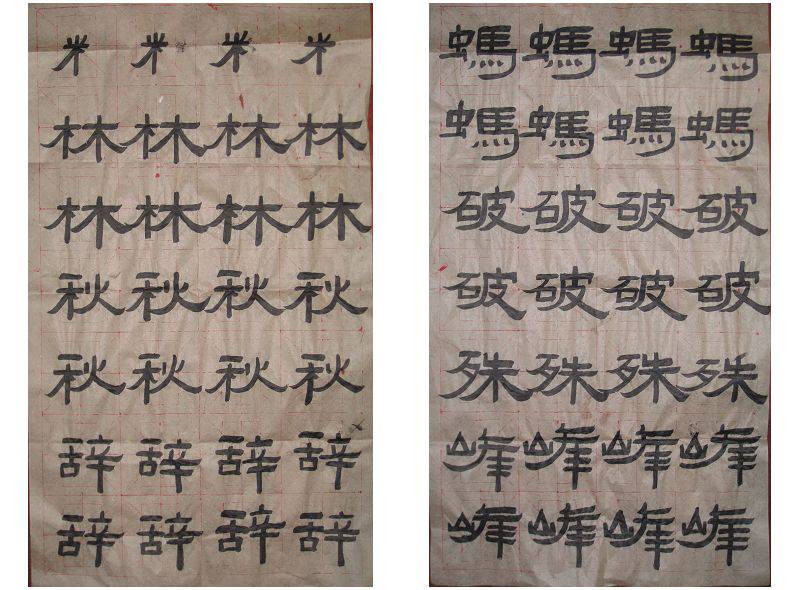 林林林林
林林林林
秋秋秋秋
秋秋秋秋
辞辞辞辞
辞辞辞辞
螞螞螞螞
螞螞螞螞
破破破破
破破破破
殊殊殊殊
峰峰峰峰
峰峰峰峰